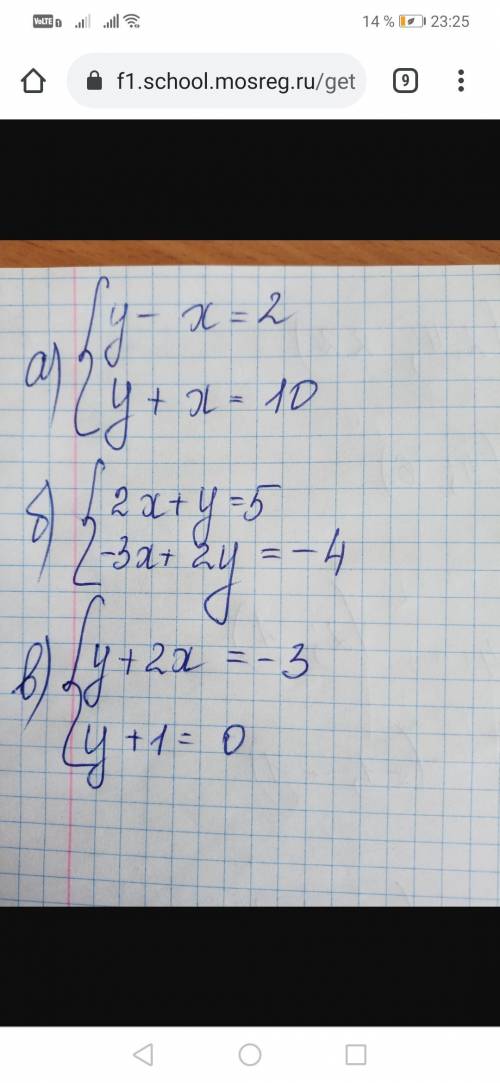 VoLTE 14 % 23:25
f1.school.mosreg.ru/get 9
а) { y - x = 2
y + x = 10
б) { 2x + y = 5
-3x + 2y = -4
в) { y + 2x = -3
y + 1 = 0